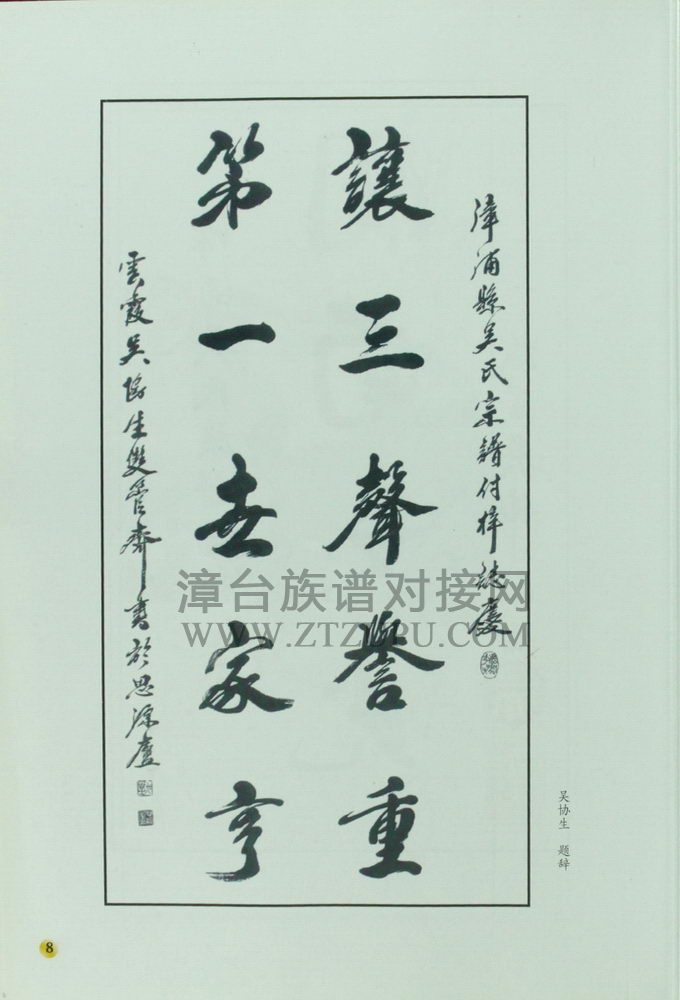 漳浦縣吴氏宗譜付梓誌慶
讓三聲譽重
第一世家亨
雲霞吴協生雙管齊書於思源廬
吴协生 题辞
漳台族谱对接网
WWW.ZTZUPU.COM
8